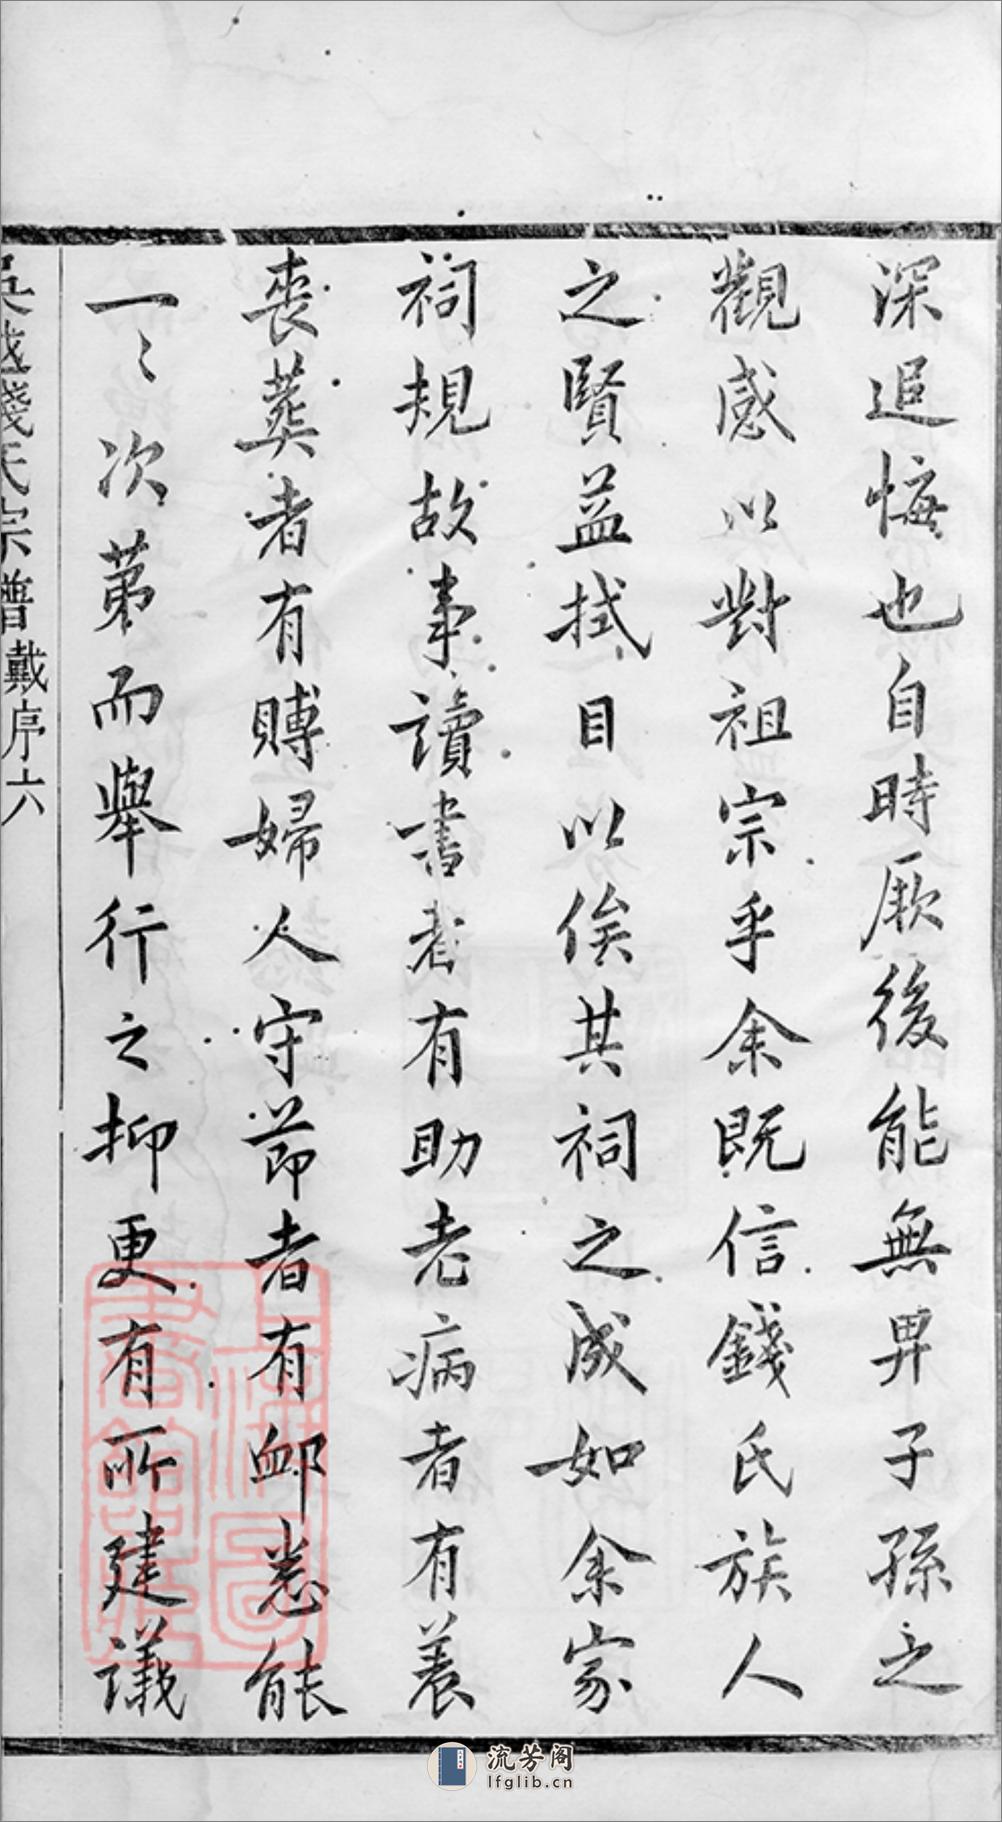 深追悔也自時厥後能無畀子孫之
觀感以對祖宗乎余既信錢氏族人
之賢益拭目以俟其祠之成如余家
祠規故事讀書者有助老病者有養
喪葬者有賻婦人守節者有卹悉能
一〻次苐而舉行之抑更有所建議
吳越錢氏宗譜戴序六
上海圖書館藏
流芳阁
lfglib.cn